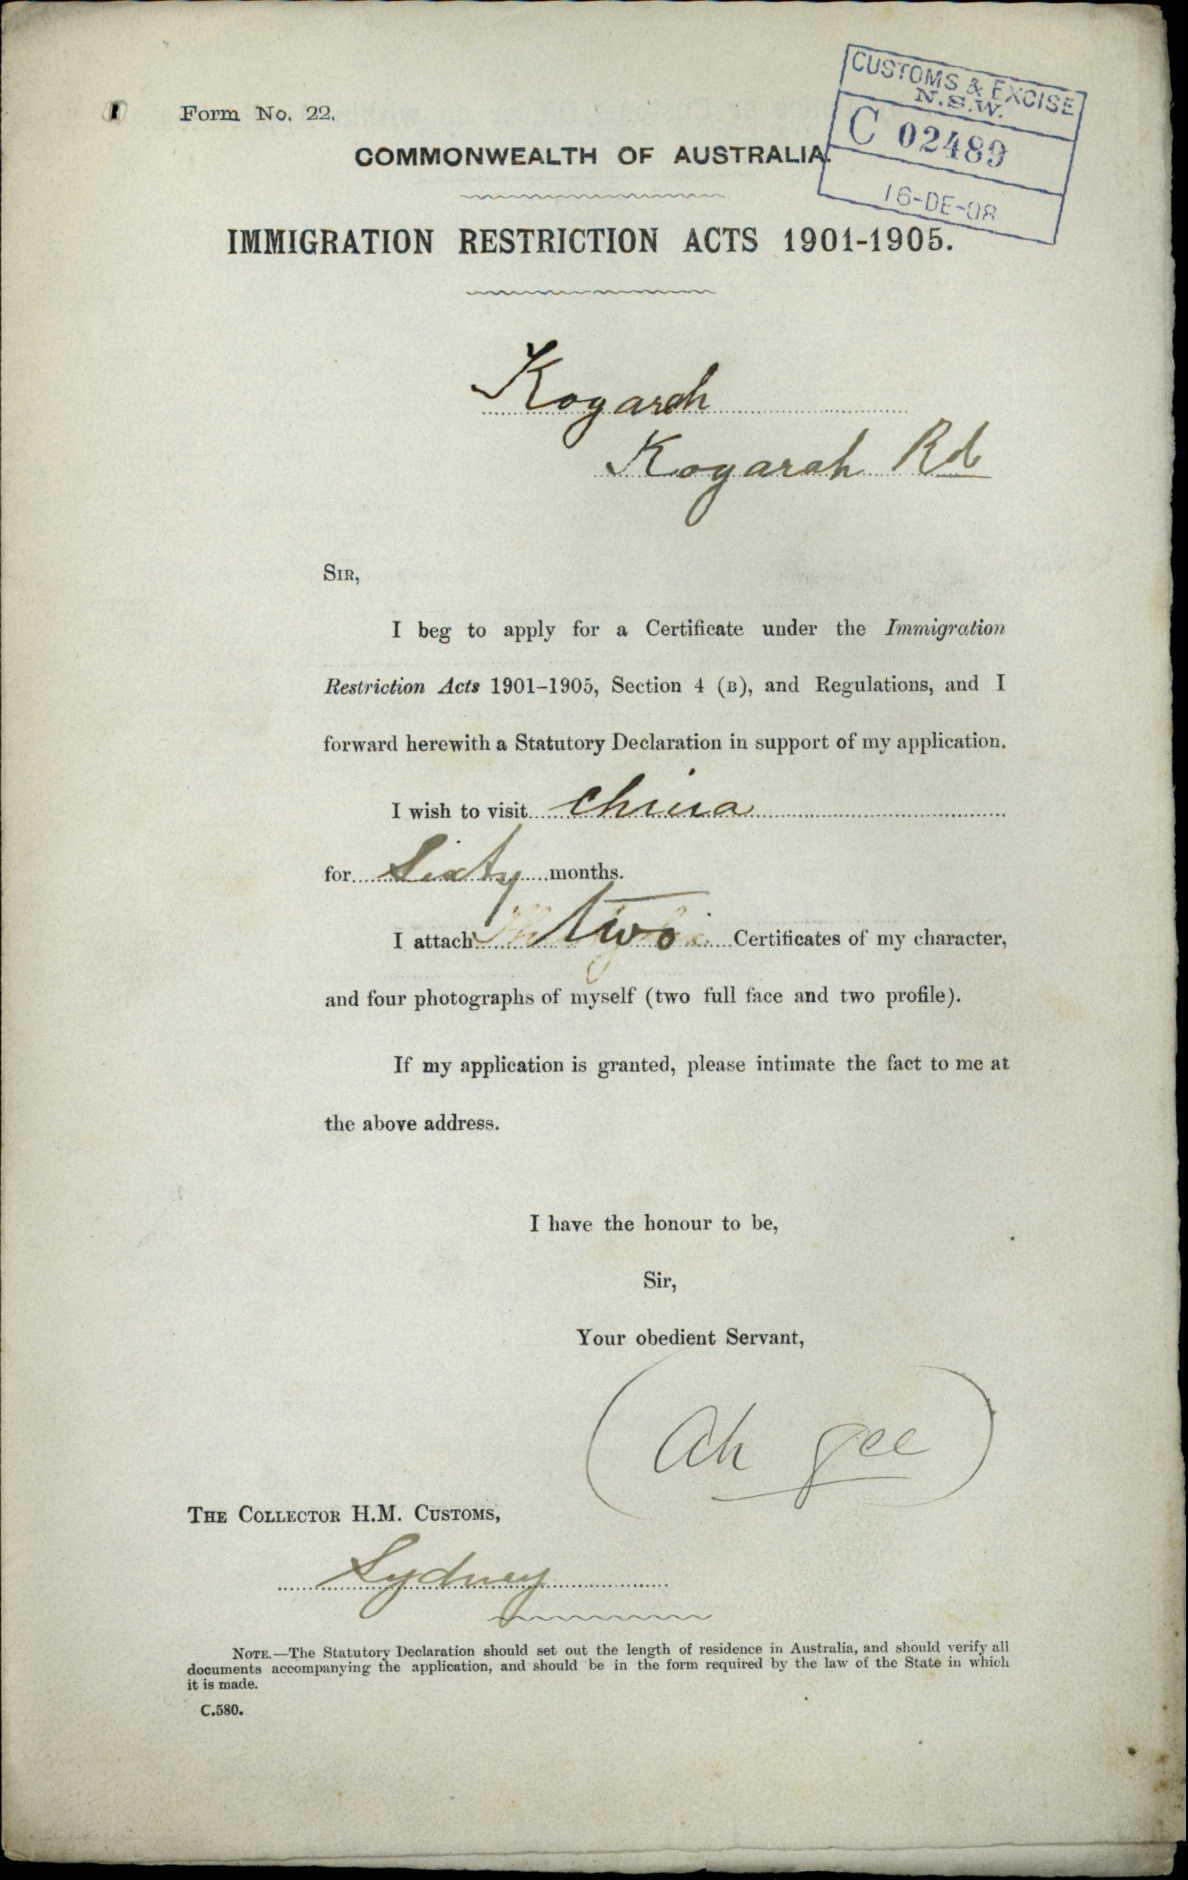 Form No. 22.
CUSTOMS & EXCISE
N.S.W.
C 02489
16-DE-08
COMMONWEALTH OF AUSTRALIA.
IMMIGRATION RESTRICTION ACTS 1901-1905.
Kogarah
Kogarah Rd
SIR,
I beg to apply for a Certificate under the Immigration
Restriction Acts 1901-1905, Section 4 (B), and Regulations, and I
forward herewith a Statutory Declaration in support of my application.
I wish to visit China
for Sixty months.
I attach two Certificates of my character,
and four photographs of myself (two full face and two profile).
If my application is granted, please intimate the fact to me at
the above address.
I have the honour to be,
Sir,
Your obedient Servant,
(Ah Gee)
THE COLLECTOR H.M. CUSTOMS,
Sydney
NOTE.—The Statutory Declaration should set out the length of residence in Australia, and should verify all
documents accompanying the application, and should be in the form required by the law of the State in which
it is made.
C.580.